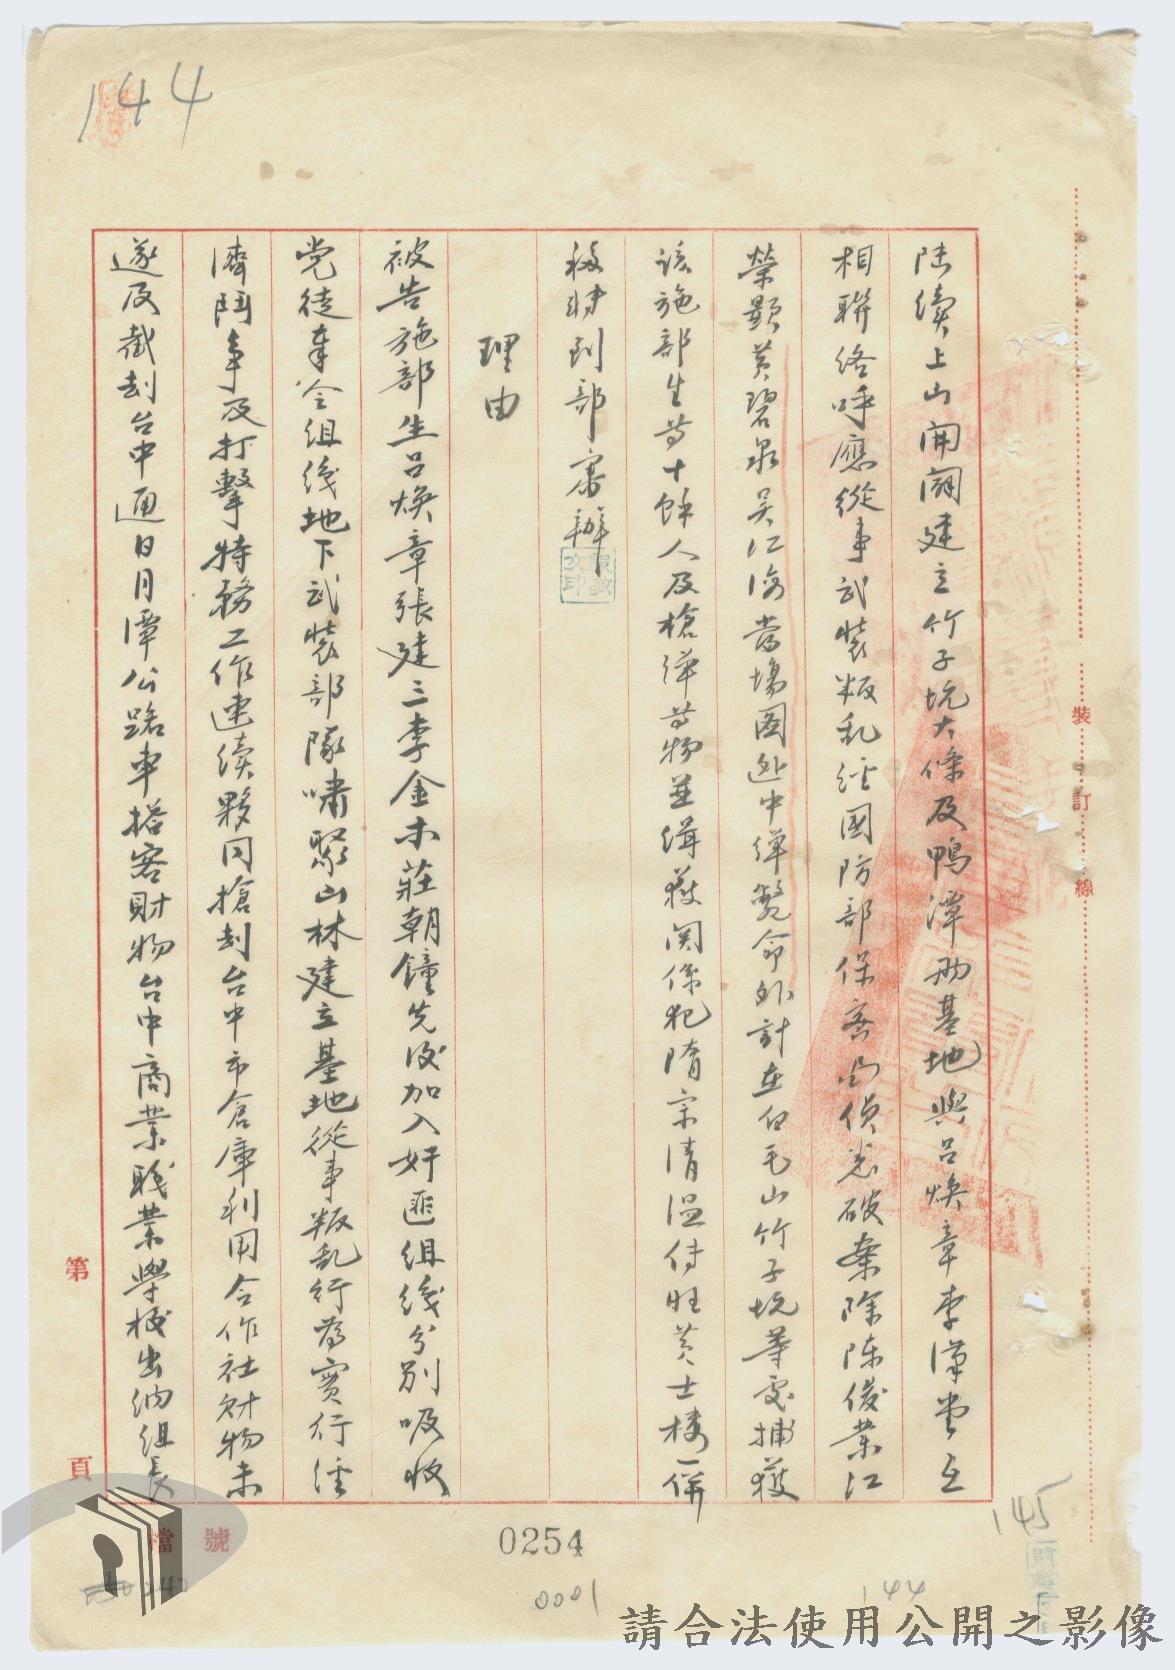 144
陸續上山開闢建立竹子坑大條及鴨潭兩基地與呂煥章李漢堂互
相聯絡呼應從事武裝叛乱經國防部保密局偵悉破案除陳俊業江
榮顯黃碧泉吳江海當場圖逃中彈斃命外計在白毛山竹子坑等處捕獲
該施部生等十餘人及槍彈等物並緝獲関係犯隋宗清溫侍旺黃士樓一併
移解到部審辦
理由
被告施部生呂煥章張建三李金木莊朝鐘先後加入奸匪組織分別吸收
党徒奉令組織地下武裝部隊嘯聚山林建立基地從事叛乱行為實行經
濟鬥争及打擊特務工作連續夥同搶刧台中市倉庫利用合作社財物未
遂及截刧台中通日月潭公路車搭客財物台中商業職業學校出納組長
裝
訂
線
第
頁
檔號
0254
0001
144
145
請合法使用公開之影像